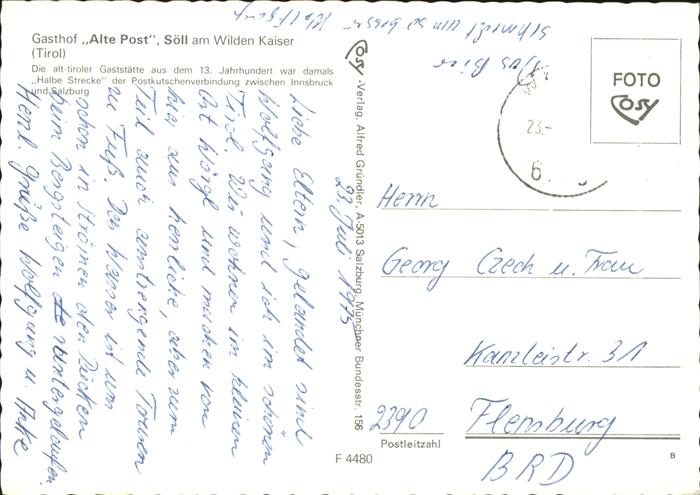 Gasthof „Alte Post", Söll am Wilden Kaiser
(Tirol)
Die alt-tiroler Gaststätte aus dem 13. Jahrhundert war damals
„Halbe Strecke" der Postkutschenverbindung zwischen Innsbruck
und Salzburg
23. Juli 1975
Liebe Eltern, gelandet sind
Wolfgang und ich im schönen
Tirol. Wir wohnen im kleinen
Ort Wörgl und machen von
hier aus herrliche, aber zum
Teil auch anstrengende Touren
zu Fuß. Das Wasser ist uns
schon in Strömen den Rücken
beim Bergsteigen runtergelaufen.
Das Bier
schmeckt uns so besser
Herzl. Grüße Wolfgang u.
Cosy -Verlag, Alfred Gründler, A-5013 Salzburg, Münchner Bundesstr. 156
FOTO
Cosy
23.-
6.
Herrn
Georg Czech u. Frau
Kanzleistr. 31
2390 Flensburg
Postleitzahl
BRD
F 4480
B